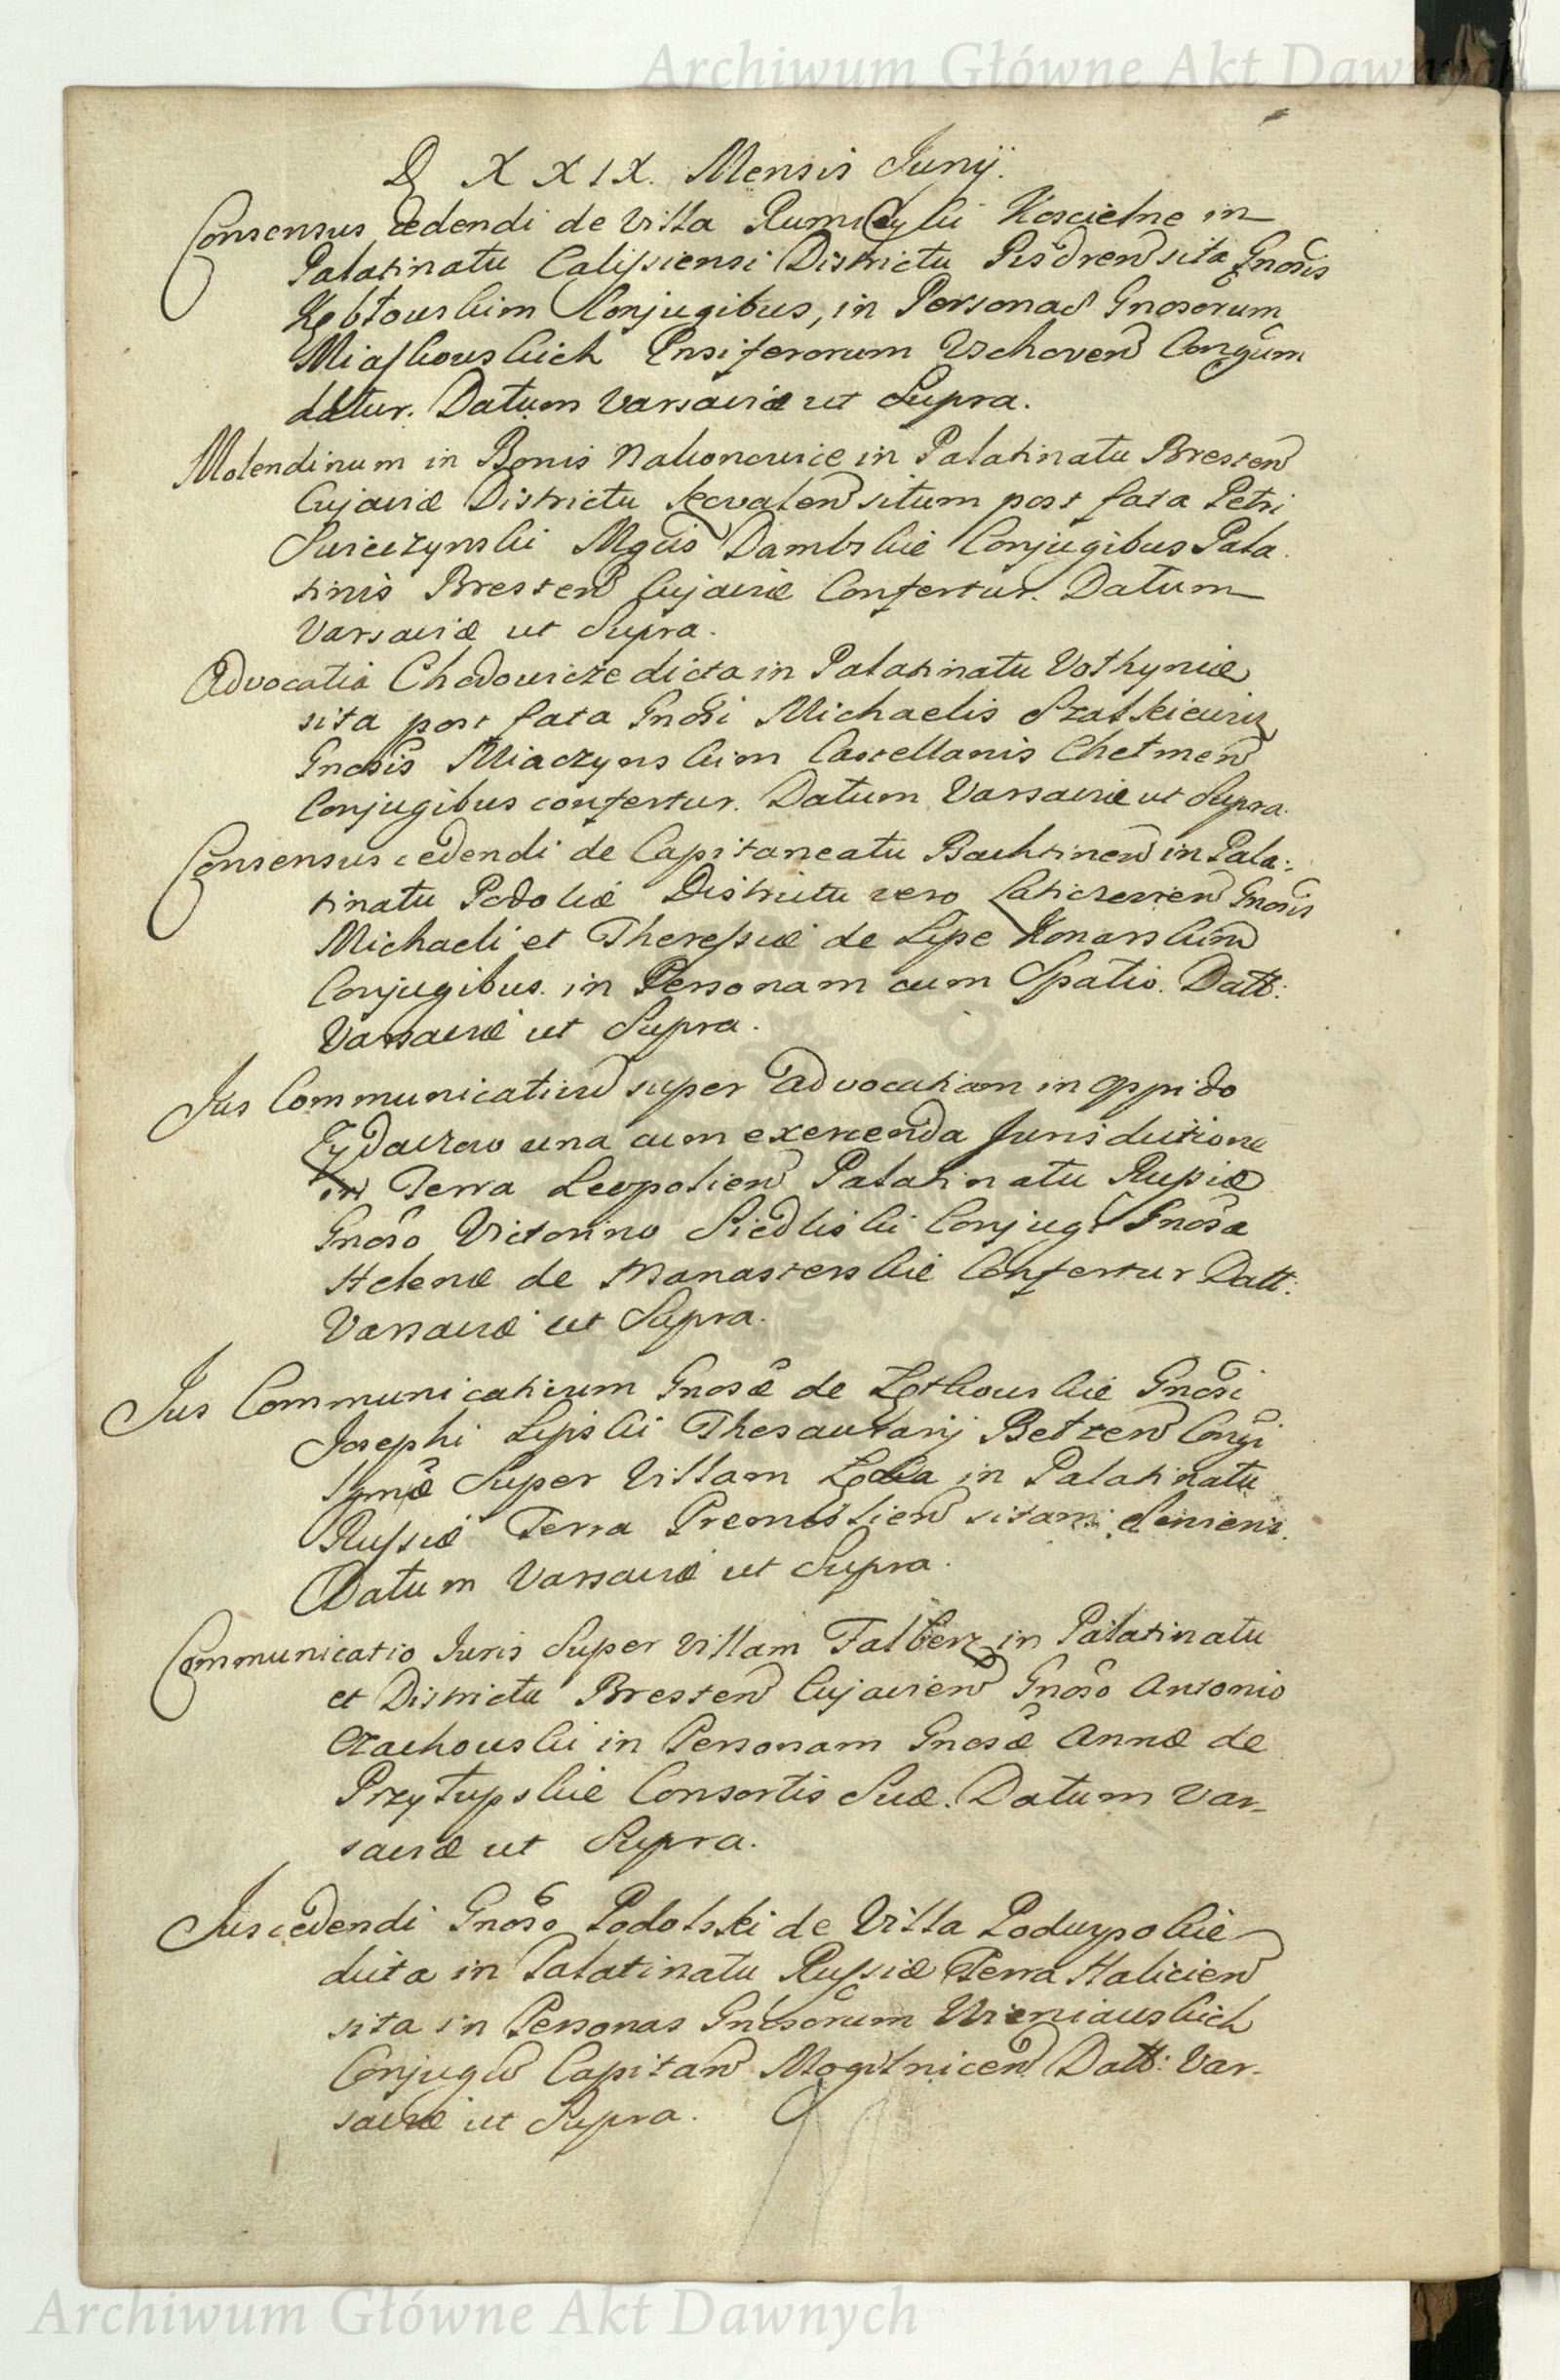 Archiwum Główne Akt Dawnych
D XXIX. Mensis Junij.
Consensus cedendi de Villa Kościelne in
Palatinatu Calissiensi Districtu Pisdren sita Gnosis
Conjugibus, in Personas Gnosorum
Miaskowskich Ensiferorum Vschoven Congum
datur. Datum Varsaviæ ut Supra.
Molendinum in Bonis Nakonowice in Palatinatu Bresten
Cujaviæ Districtu Kovalen situm post fata Petri
Swieczynski Mgcis Dambskie Conjugibus Pala
tinis Bresten Cujaviæ Confertur. Datum
Varsaviæ ut Supra.
Advocatia Chodowicze dicta in Palatinatu Volhyniæ
sita post fata Gnosi Michaelis Szalkiewicz
Gnosis Miaczynskim Castellanis Chelmen
Conjugibus confertur. Datum Varsaviæ ut Supra.
Consensus cedendi de Capitaneatu Bachtinen in Pala:
tinatu Podoliæ Districtu vero Laticzovien Gnosis
Michaeli et Theressiæ de Lipe Konarskim
Conjugibus in Personam cum Spatio. Datt:
Varsaviæ ut Supra.
Jus Communicativu super advocatiam in oppido
Zydaczow una cum exercenda Jurisdictione
in Terra Leopolien Palatinatu Russiæ
Gnoso Victorino Siedliski Conjugi Gnosæ
Helenæ de Manasterskie Confertur Datt:
Varsaviæ ut Supra.
Jus Communicativum Gnosæ de Gnosi
Josephi Lipski Thesaurarij Belzen Congi
Super Villam in Palatinatu
Russiæ Terra Premislien sitam
Datum Varsaviæ ut Supra.
Communicatio Juris Super Villam Falberz in Palatinatu
et Districtu Bresten Cujavien Gnoso Antonio
Czachowski in Personam Gnosæ Annæ de
Przyłupskie Consortis Suæ. Datum Var-
saviæ ut Supra.
Jus cedendi Gnoso Podolski de Villa
dicta in Palatinatu Russiæ Terra Halicien
sita in Personas Gnosorum Wieniawskich
Conjugu Capitan Mogilnicen Datt: Var-
saviæ ut Supra.
Archiwum Główne Akt Dawnych